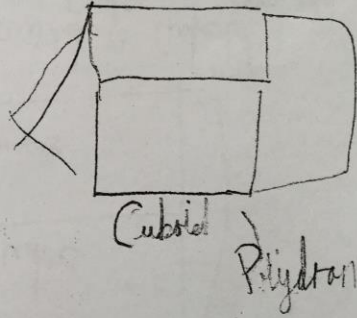 Cuboid
Polydron